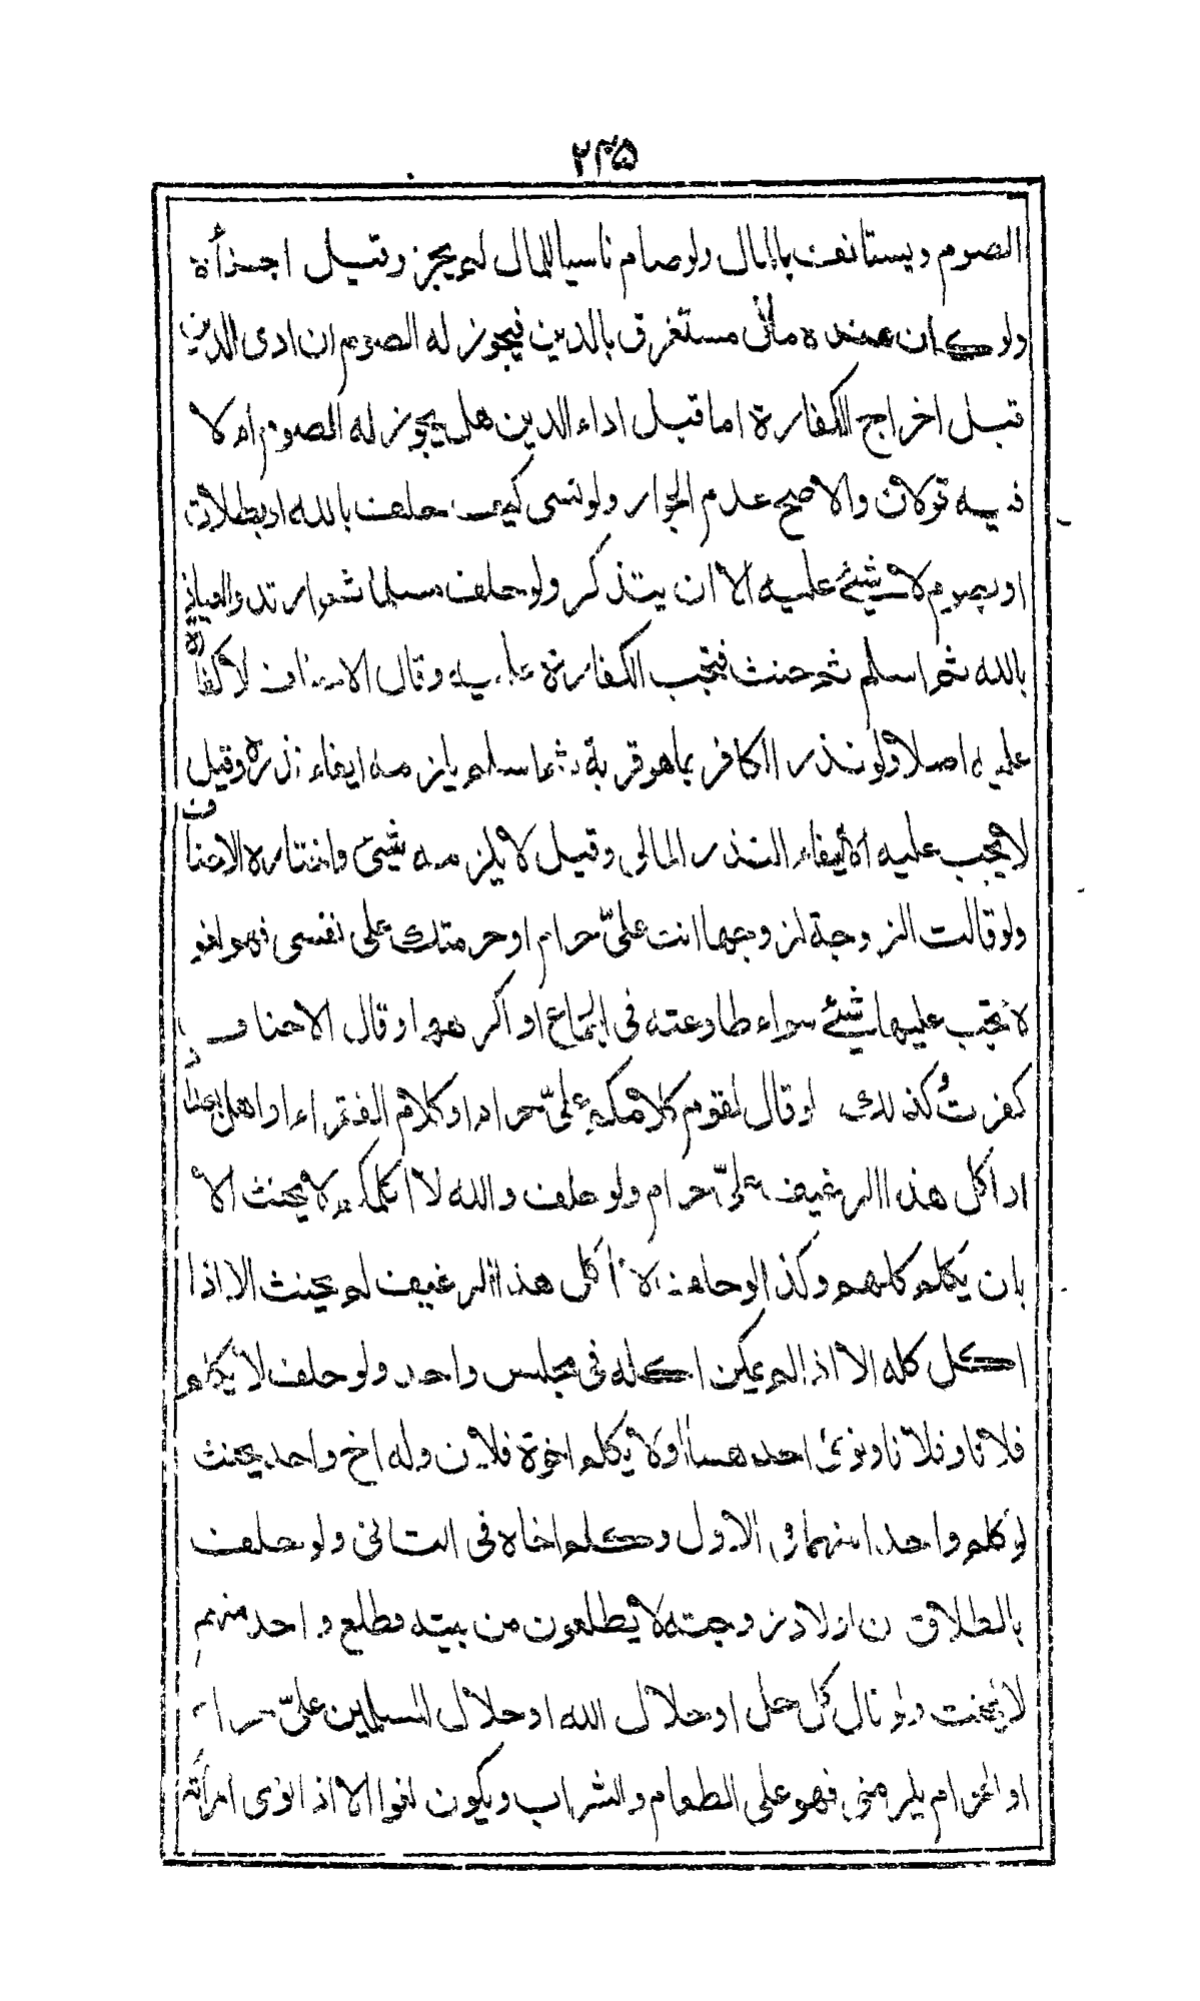 ۲۴۵
الصوم ويستانف بالمال ولو صام ناسيا للمال لم يجز وقيل اجزأه
ولو كان عنده مال مستغرق بالدين فيجوز له الصوم ان ادى الدين
قبل اخراج الكفارة اما قبل اداء الدين هل يجوز له الصوم ام لا
فيه قولان والاصح عدم الجواز ولو نسى كيف حلف بالله او بطلاق
او بصوم لا شيئ عليه الا ان يتذكر ولو حلف مسلما ثم ارتد والعياذ
بالله ثم اسلم ثم حنث فتجب الكفارة عليه وقال الاحناف لا كفارة
عليه اصلا ولو نذر الكافر بما هو قربة ثم اسلم يلزمه ايفاء نذره وقيل
لا يجب عليه الا ايفاء النذر المالى وقيل لا يلزمه شيئ واختاره الاحناف
ولو قالت الزوجة لزوجها انت علىّ حرام او حرمتك على نفسى فهو لغو
لا تجب عليها شيئ سواء طاوعته فى الجماع او اكرهها وقال الاحناف
كفرت كذلك لو قال لقوم كلامكم علىّ حرام او كلام الفقراء او اهل بغداد
او اكل هذا الرغيف علىّ حرام ولو حلف والله لا اكلمكم لا يحنث الا
بان يكلم كلهم وكذا لو حلف لا أكل هذا الرغيف لم يحنث الا اذا
اكل كله الا اذا لم يمكن اكله فى مجلس واحد ولو حلف لا يكلم
فلانا وفلانا ونوى احدهما او لا يكلم اخوة فلان وله اخ واحد يحنث
لو كلم واحدا منهما فى الاول وكلم اخاه فى الثانى ولو حلف
بالطلاق ان اولاد زوجته لا يطلعون من بيته فطلع واحد منهم
لا يحنث ولو قال كل حل او حلال الله او حلال المسلمين علىّ حرام
او الحرام يلزمنى فهو على الطعام والشراب ويكون لغوا الا اذا نوى امرأته